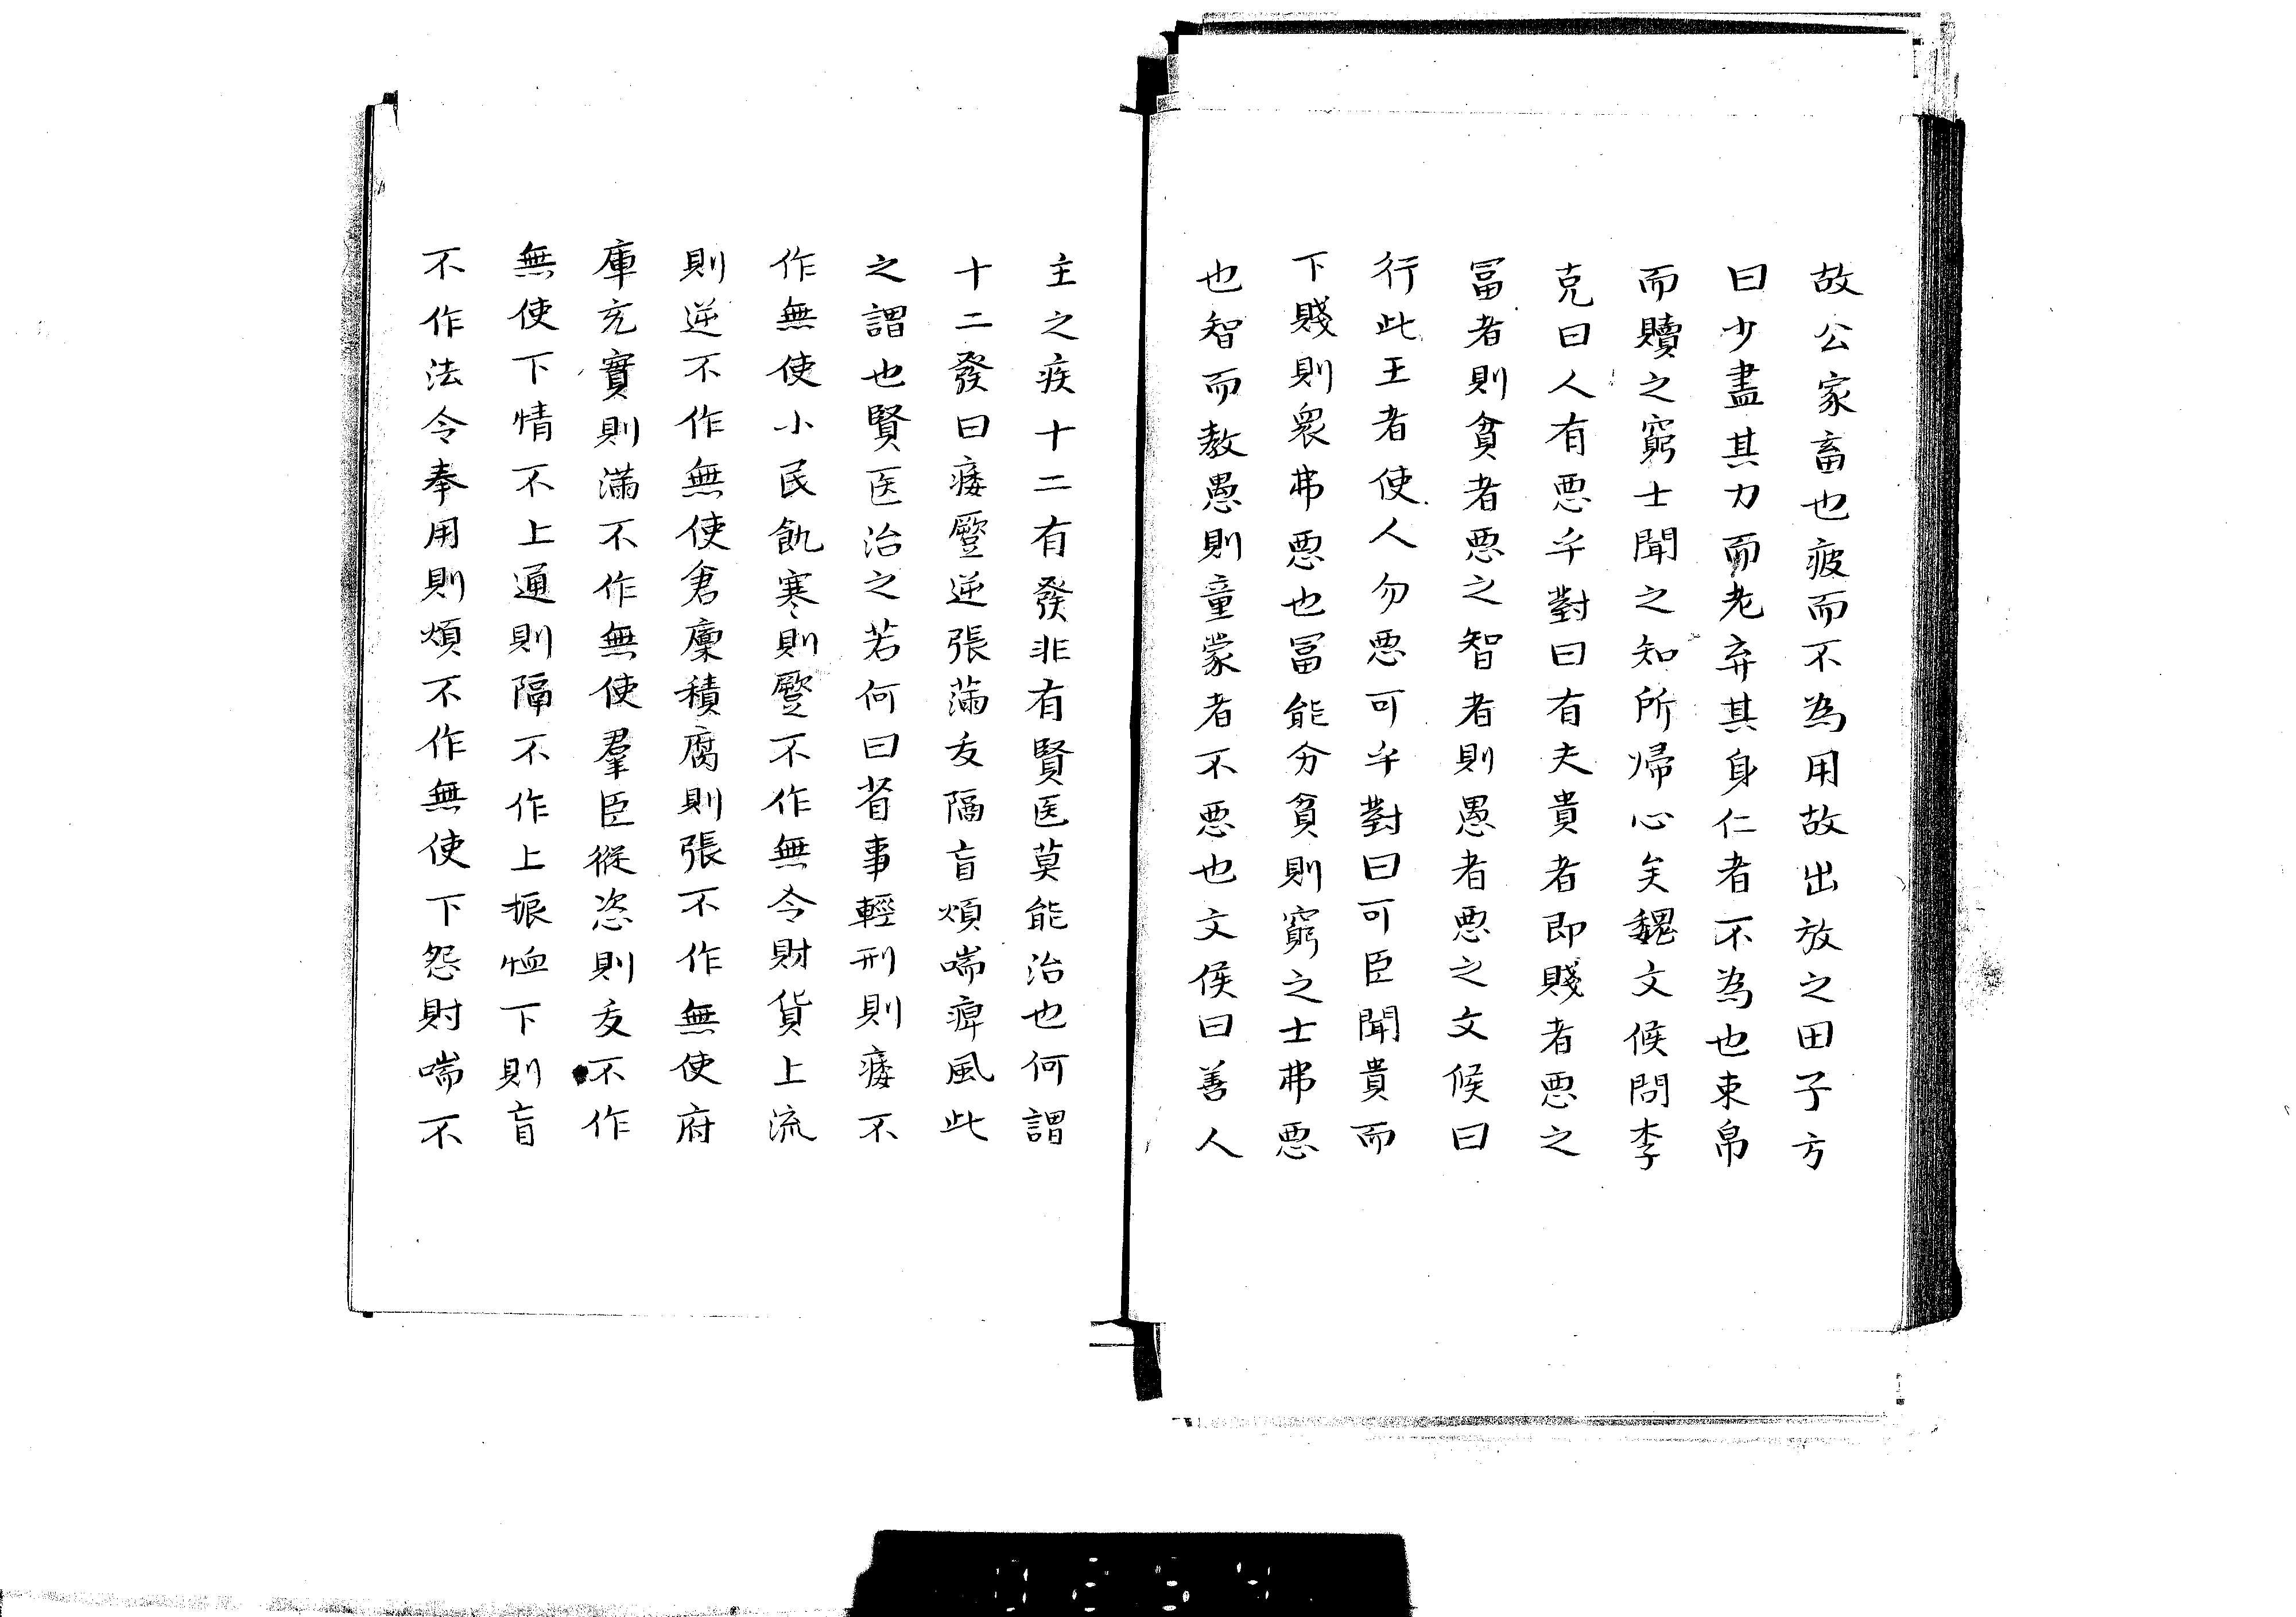 故公家畜也疲而不為用故出放之田子方
曰少盡其力而老弃其身仁者不為也束帛
而贖之窮士聞之知所帰心矣魏文候問李
克曰人有悪乎對曰有夫貴者即賤者悪之
冨者則貧者悪之智者則愚者悪之文候曰
行此王者使人勿悪可乎對曰可臣聞貴而
下賤則衆弗悪也冨能分貧則窮之士弗悪
也智而教愚則童蒙者不悪也文侯曰善人
主之疾十二有發非有賢医莫能治也何謂
十二發曰痿蹷逆張滿支隔盲煩喘痺風此
之謂也賢医治之若何曰省事輕刑則痿不
作無使小民飢寒則蹷不作無令財貨上流
則逆不作無使倉廩積腐則張不作無使府
庫充實則滿不作無使羣臣縦恣則支不作
無使下情不上通則隔不作上振恤下則盲
不作法令奉用則煩不作無使下怨則喘不